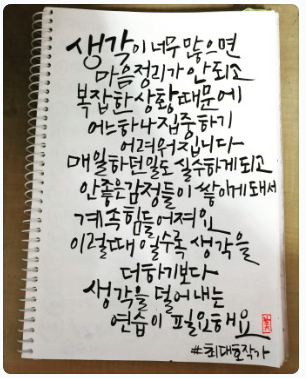 생각이 너무 많으면
마음정리가 안되고
복잡한 상황때문에
어느하나 집중하기
어려워집니다
매일하던일도 실수하게되고
안좋은감정들이 쌓이게돼서
계속힘들어져요
이럴때 일수록 생각을
더하기보다
생각을 덜어내는
연습이 필요해요
#최대호작가